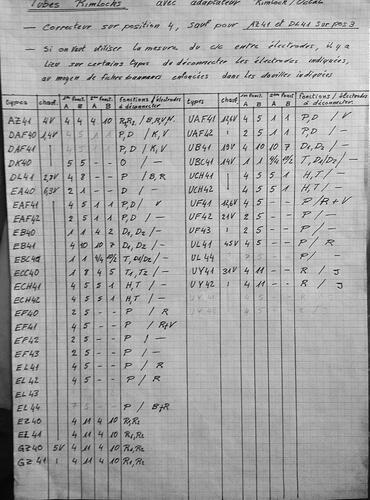 Tubes Rimlocks avec adaptateur Rimlock/Octal
- Correcteur sur position 4, sauf pour AZ41 et DL41 sur pos 3
- Si on veut utiliser la mesure du c/c entre électrodes, il y a
lieu sur certains types de déconnecter les électrodes indiquées,
au moyen de fiches bananes enfoncées dans les douilles indiquées
types chauf. 1ère fonct. 2ème fonct. Fonctions / électrodes à déconnecter. types chauf. 1ère fonct. 2ème fonct. Fonctions / électrodes à déconnecter
A B A B A B A B
AZ41 4V 4 4 4 10 UAF41 12,6V 4 5 1 1 P,D / V
DAF40 1,4V P,D / K,V UAF42 2 5 1 1 P,D / -
DAF41 P,D / K,V UB41 19V 4 10 10 7 D1,D2 / -
DK40 5 5 - - O / - UBC41 14V 1 1 T,D1/D2 / -
DL41 4 8 - - P / B,R UCH41 4 5 5 1 H,T / -
EA40 6,3V 2 1 - - D / - UCH42 4 5 5 1 H,T / -
EAF41 4 5 1 1 P,D / V UF41 12,6V 4 5 - - P / R+V
EAF42 2 5 1 1 P,D / - UF42 21V 2 5 - - P / -
EB40 1 1 4 2 D1,D2 / - UF43 2 5 - - P / -
EB41 4 10 10 7 D1,D2 / - UL41 45V 4 5 - - P / R
EBC41 1 1 T,D1/D2 / - UL44 P / -
ECC40 1 8 4 5 T1,T2 / - UY41 31V 4 11 - - R / J
ECH41 4 5 5 1 H,T / - UY42 4 11 - - R / J
ECH42 4 5 5 1 H,T / -
EF40 2 5 - - P / -
EF41 4 5 - - P / R+V
EF42 2 5 - - P / -
EF43 2 5 - - P / -
EL41 4 5 - - P / R
EL42 4 5 - - P / R
EL43
EL44 P / B+R
EZ40 4 11 4 10 R1,R2
EZ41 4 11 4 10 R1,R2
GZ40 5V 4 11 4 10 R1,R2
GZ41 4 11 4 10 R1,R2